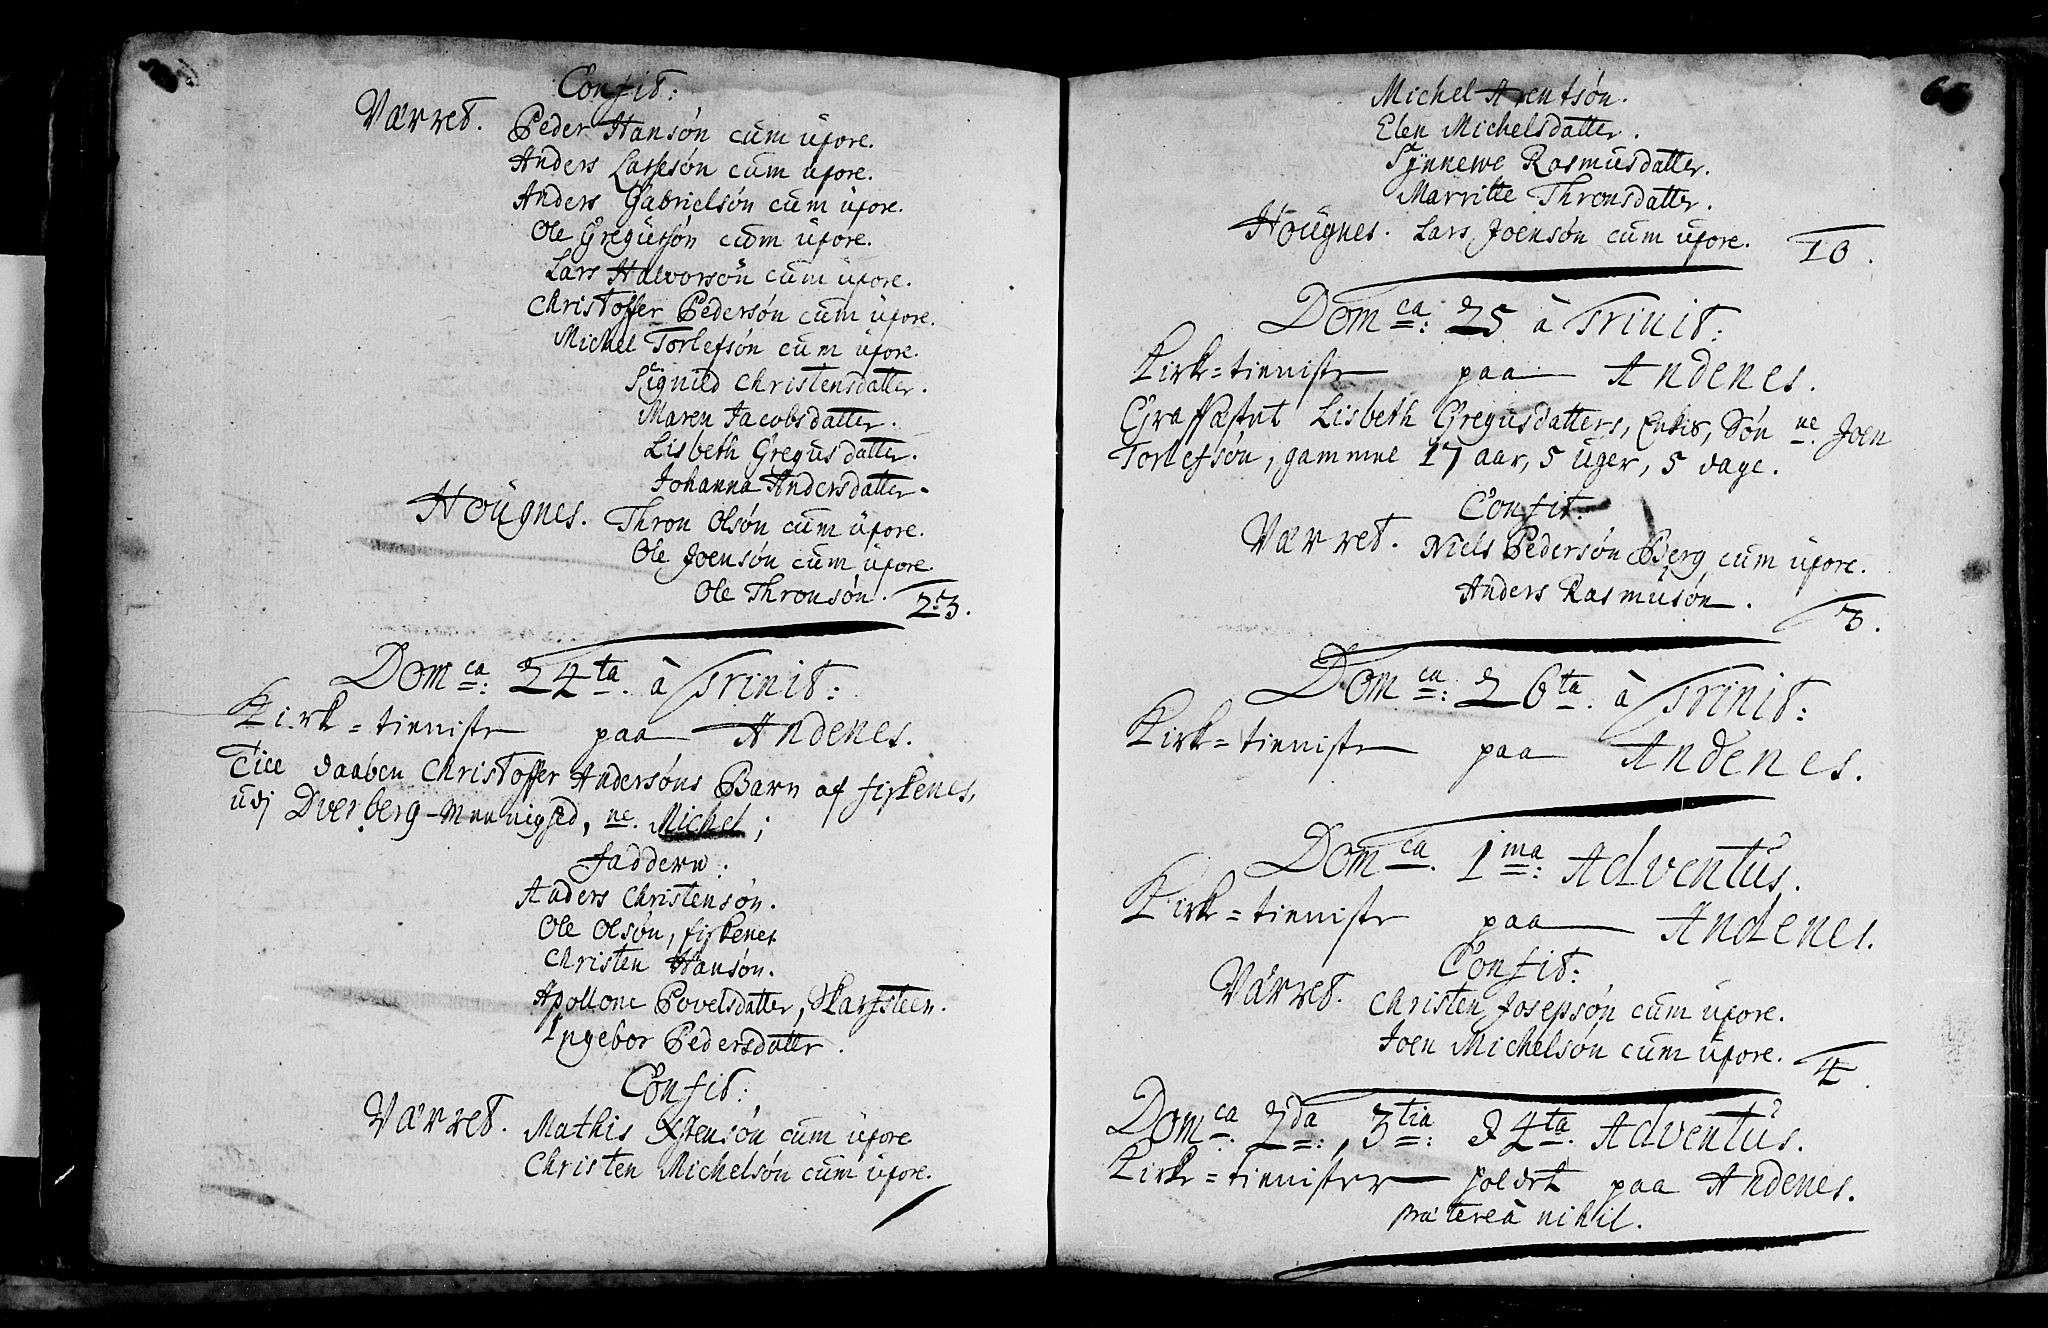 Confit:
Værret. Peder Hansøn cum uxore.
Anders Larsesøn cum uxore.
Anders Gabrielsøn cum uxore.
Ole Gregusøn cum uxore.
Lars Halvorsøn cum uxore.
Christoffer Pedersøn cum uxore.
Michel Torlefsøn cum uxore.
Signild Christensdatter.
Maren Jacobsdatter.
Lisbeth Gregusdatter.
Johanna Andersdatter.
Hougnes. Thron Olsøn cum uxore.
Ole Joensøn cum uxore.
Ole Thronsøn. 23.
Domca: 24ta. à Trinit:
Kirke-tieniste paa Andenes.
Til daaben Christoffer Andersøns Barn af fiskenes,
udj Dverberg-Mennighed, ne. Michel;
faddern:
Anders Christensøn.
Ole Olsøn, fiskenes
Christen Hansøn.
Apollone Povelsdatter, Skarfsteen.
Ingebor Pedersdatter.
Confit:
Værret. Mathis Estensøn cum uxore
Christen Michelsøn cum uxore.
66
Michel Arentsøn.
Elen Michelsdatter.
Synnewe Rasmusdatter.
Marritte Thronsdatter.
Hougnes. Lars Joensøn cum uxore. 10.
Domca: 25 à Trinit:
Kirke-tieniste paa Andenes.
Graffæstet Lisbeth Gregusdatters, Enkes, Søn ne. Joen
Torlefsøn, gammel 17 aar, 5 uger, 5 dage.
Confit:
Værret. Niels Pedersøn Berg cum uxore.
Anders Rasmusøn. 3.
Domca: 26ta. à Trinit:
Kirke-tieniste paa Andenes.
Domca. 1ma: Adventus.
Kirke-tieniste paa Andenes.
Confit:
Værret. Christen Josepsøn cum uxore.
Joen Michelsøn cum uxore. 4.
Domca. 2da:, 3tia: & 4ta. Adventus.
Kirke-tienister holdet paa Andenes.
præterea nihil.